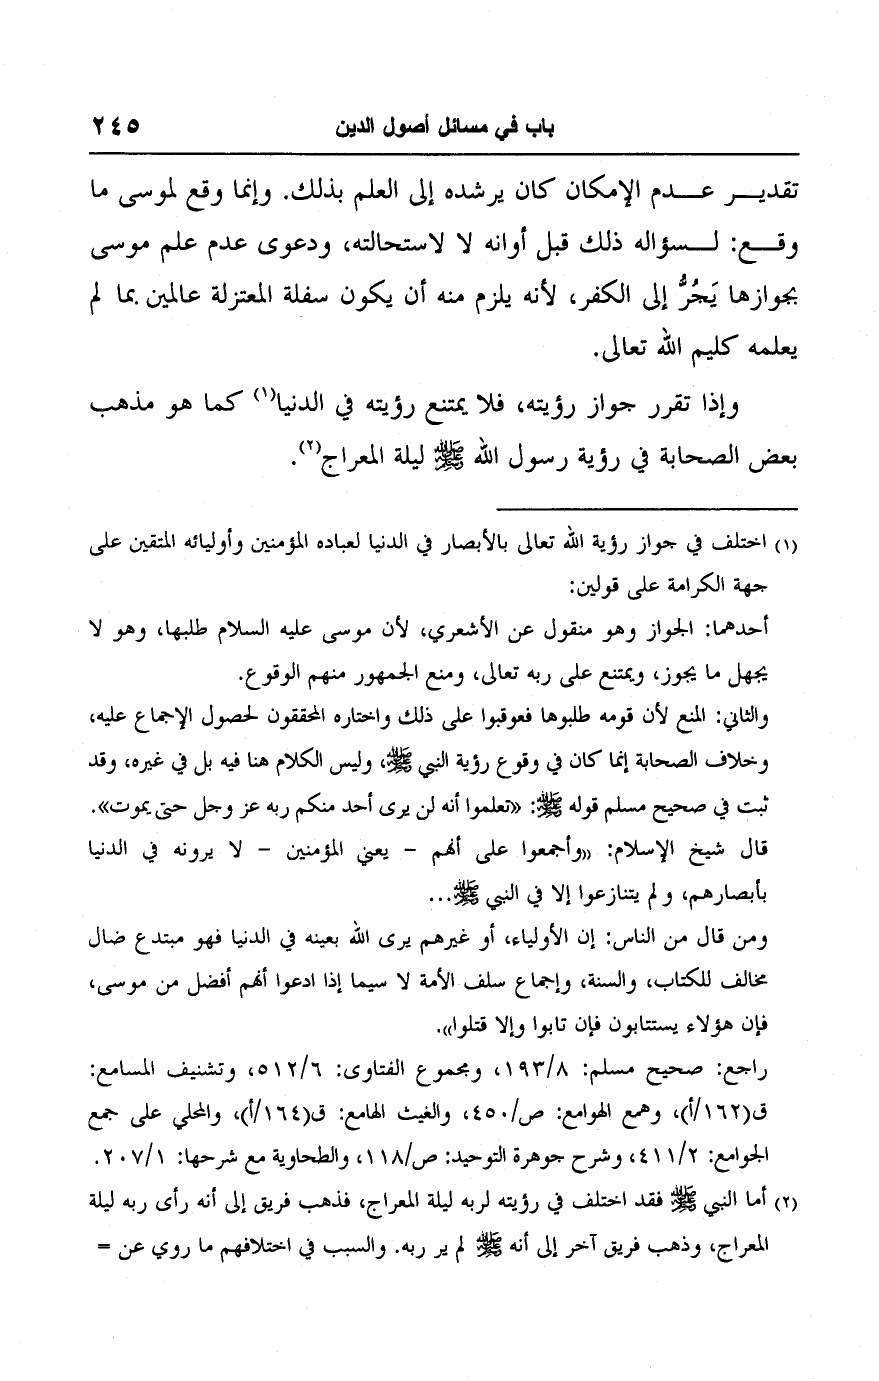 باب في مسائل أصول الدين ٢٤٥
تقديـــر عـــدم الإمكان كان يرشده إلى العلم بذلك. وإنما وقع لموسى ما
وقـــع: لـــسؤاله ذلك قبل أوانه لا لاستحالته، ودعوى عدم علم موسى
بجوازها يَجُرُّ إلى الكفر، لأنه يلزم منه أن يكون سفلة المعتزلة عالمين بما لم
يعلمه كليم الله تعالى.
وإذا تقرر جواز رؤيته، فلا يمتنع رؤيته في الدنيا(١) كما هو مذهب
بعض الصحابة في رؤية رسول الله ﷺ ليلة المعراج(٢).
(١) اختلف في جواز رؤية الله تعالى بالأبصار في الدنيا لعباده المؤمنين وأوليائه المتقين على
جهة الكرامة على قولين:
أحدهما: الجواز وهو منقول عن الأشعري، لأن موسى عليه السلام طلبها، وهو لا
يجهل ما يجوز، ويمتنع على ربه تعالى، ومنع الجمهور منهم الوقوع.
والثاني: المنع لأن قومه طلبوها فعوقبوا على ذلك واختاره المحققون لحصول الإجماع عليه،
وخلاف الصحابة إنما كان في وقوع رؤية النبي ﷺ، وليس الكلام هنا فيه بل في غيره، وقد
ثبت في صحيح مسلم قوله ﷺ: «تعلموا أنه لن يرى أحد منكم ربه عز وجل حتى يموت».
قال شيخ الإسلام: «وأجمعوا على أنهم - يعني المؤمنين - لا يرونه في الدنيا
بأبصارهم، ولم يتنازعوا إلا في النبي ﷺ...
ومن قال من الناس: إن الأولياء، أو غيرهم يرى الله بعينه في الدنيا فهو مبتدع ضال
مخالف للكتاب، والسنة، وإجماع سلف الأمة لا سيما إذا ادعوا أنهم أفضل من موسى،
فإن هؤلاء يستتابون فإن تابوا وإلا قتلوا».
راجع: صحيح مسلم: ١٩٣/٨، ومجموع الفتاوى: ٥١٢/٦، وتشنيف المسامع:
ق(١٦٢/أ)، وهمع الهوامع: ص/٤٥٠، والغيث الهامع: ق(١٦٤/أ)، والمحلي على جمع
الجوامع: ٤١١/٢، وشرح جوهرة التوحيد: ص/١١٨، والطحاوية مع شرحها: ٢٠٧/١.
(٢) أما النبي ﷺ فقد اختلف في رؤيته لربه ليلة المعراج، فذهب فريق إلى أنه رأى ربه ليلة
المعراج، وذهب فريق آخر إلى أنه ﷺ لم ير ربه. والسبب في اختلافهم ما روي عن =